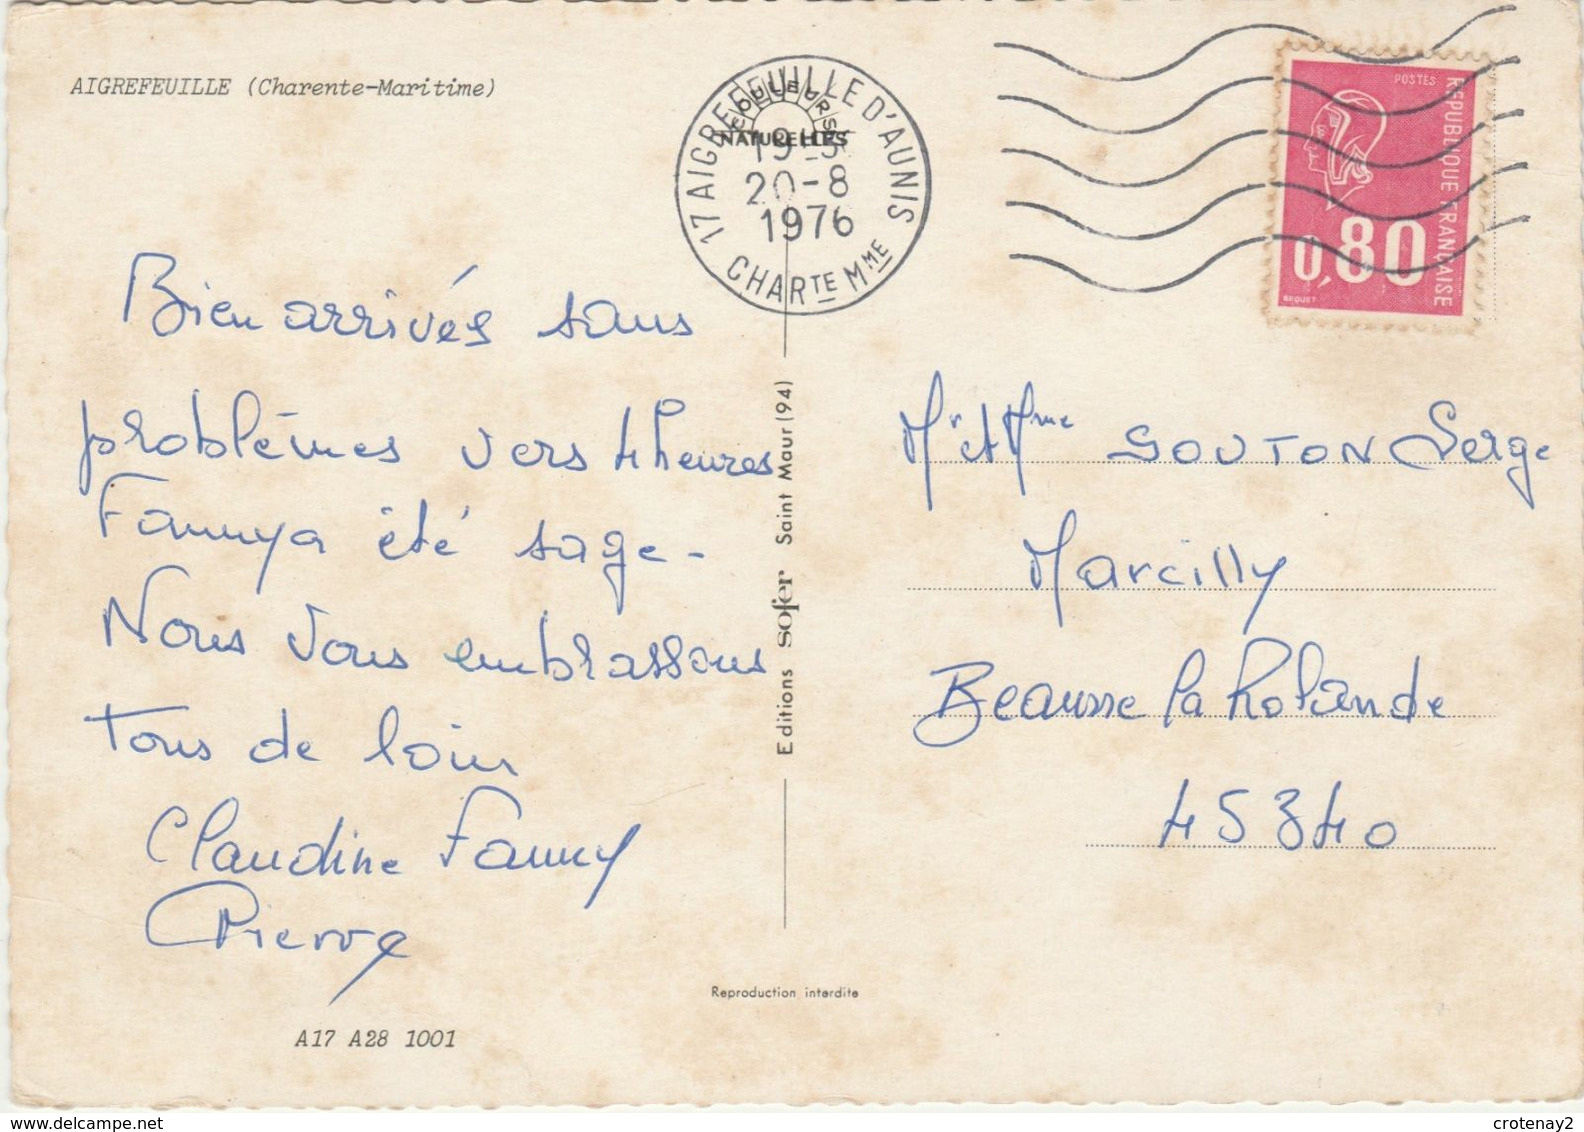 AIGREFEUILLE (Charente-Maritime)
COULEURS
NATURELLES
17 AIGREFEUILLE D'AUNIS
19H
20-8
1976
CHARTE MME
POSTES
REPUBLIQUE FRANÇAISE
0,80
BEQUET
Bien arrivés sans
problèmes vers 4 heures
Fanny a été sage -
Nous vous embrassons
Tous de loin
Claudine Fanny
Pierre
A17 A28 1001
Editions sofer Saint Maur (94)
Reproduction interdite
Mr et Mme SOUTON Serge
Marcilly
Beausse la Rolande
45340
crotenay2